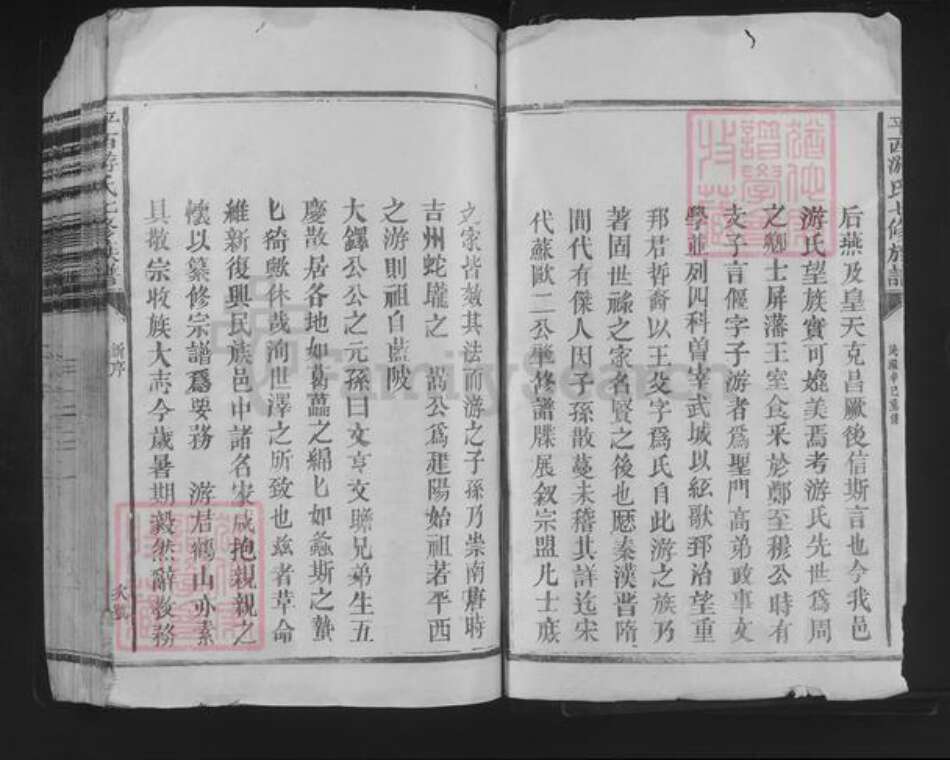 后燕及皇天克昌厥後信斯言也今我邑
游氏望族實可媲美焉考游氏先世為周
之卿士屏藩王室食采於鄭至穆公時有
支子言偃字子游者為聖門高弟政事文
學並列四科曾宰武城以絃歌郅治望重
邦君哲裔以王父字為氏自此游之族乃
著固世祿之家名賢之後也歷秦漢晋隋
間代有傑人因子孫散蔓未稽其詳迄宋
代蘇歐二公肇修譜牒展叙宗盟凡士庶
之家皆效其法而游之子孫乃崇南唐時
吉州蛇壠之 暠公為建陽始祖若平西
之游則祖自藍陂
大鐸公公之元孫曰文亨文聰兄弟生五
慶散居各地如葛藟之綿匕如螽斯之蟄
匕猗歟休哉洵世澤之所致也兹者革命
維新復興民族邑中諸名家咸抱親親之
懷以纂修宗譜為要務 游君鶴山亦素
具敬宗收族大志今歲暑期毅然辭教務
平西游氏七修族譜
平西游氏七修族譜
新序
FamilySearch